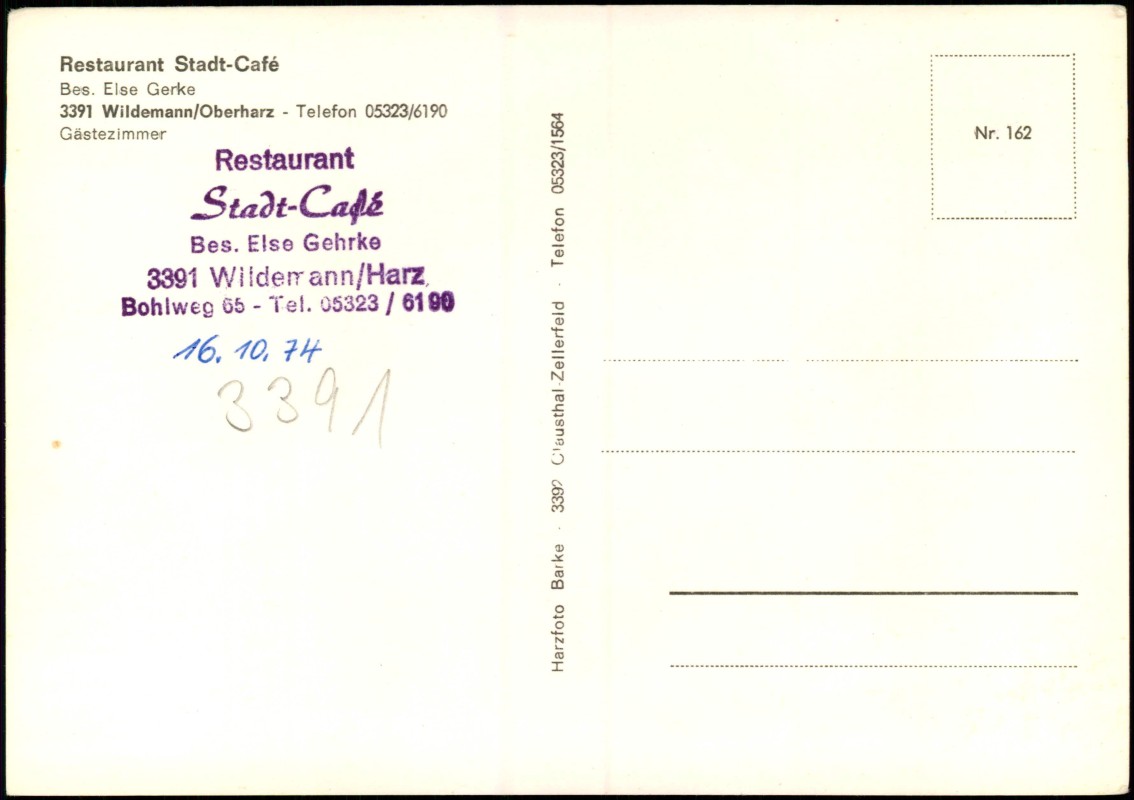 Restaurant Stadt-Café
Bes. Else Gerke
3391 Wildemann/Oberharz - Telefon 05323/6190
Gästezimmer
Restaurant
Stadt-Café
Bes. Else Gehrke
3391 Wildemann/Harz,
Bohlweg 65 - Tel. 05323 / 6190
16. 10. 74
3391
Harzfoto Barke · 3392 Clausthal-Zellerfeld · Telefon 05323/1564
Nr. 162